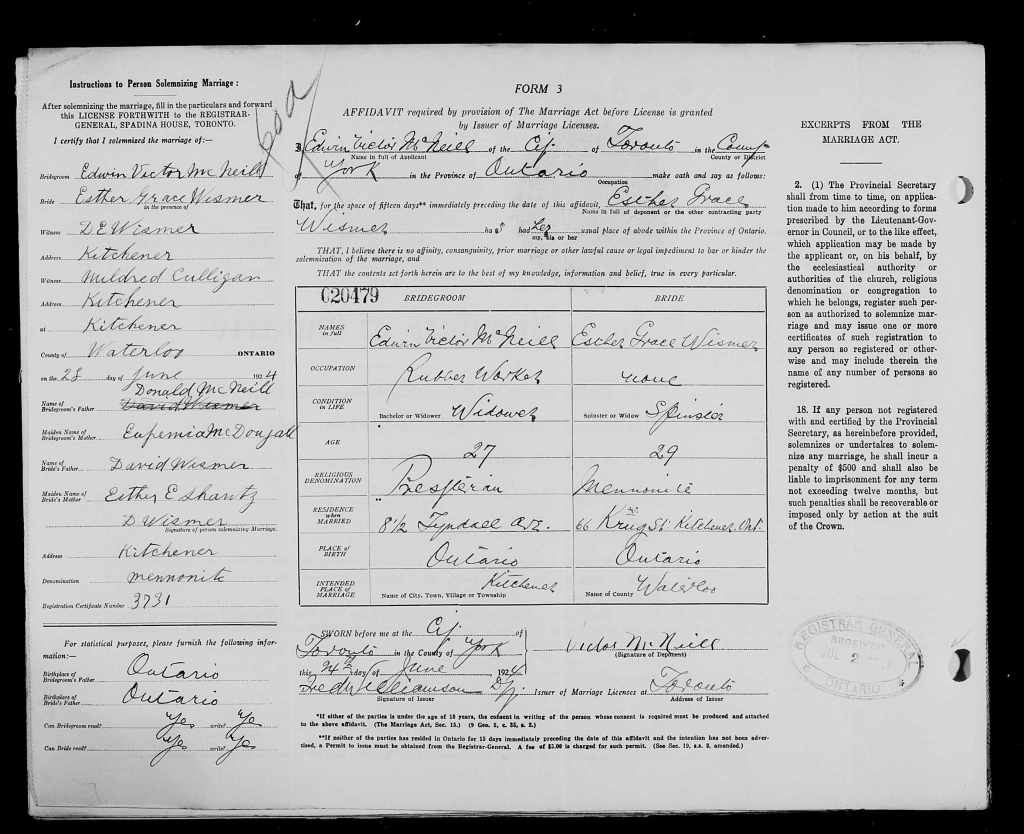 Instructions to Person Solemnizing Marriage:
After solemnizing the marriage, fill in the particulars and forward
this LICENSE FORTHWITH to the REGISTRAR-
GENERAL, SPADINA HOUSE, TORONTO.
I certify that I solemnized the marriage of:—
Bridegroom Edwin Victor McNeill
Bride Esther Grace Wismer
in the presence of
Witness D E Wismer
Address Kitchener
Witness Mildred Culligan
Address Kitchener
at Kitchener
County of Waterloo ONTARIO
on the 28 day of June 1924
Donald McNeill
Name of Bridegroom's Father David Wismer
Maiden Name of Bridegroom's Mother Eupemia McDougall
Name of Bride's Father David Wismer
Maiden Name of Bride's Mother Esther E Shantz
D Wismer
Signature of person solemnizing Marriage.
Address Kitchener
Denomination mennonite
Registration Certificate Number 3731
For statistical purposes, please furnish the following infor-
mation:—
Birthplace of Bridegroom's Father Ontario
Birthplace of Bride's Father Ontario
Can Bridegroom read? Yes write? Yes
Can Bride read? Yes write? Yes
FORM 3
AFFIDAVIT required by provision of The Marriage Act before License is granted
by Issuer of Marriage Licenses.
I, Edwin Victor McNeill of the City of Toronto in the County
Name in full of Applicant County or District
of York in the Province of Ontario make oath and say as follows:
Occupation
That, for the space of fifteen days** immediately preceding the date of this affidavit, Esther Grace
Name in full of deponent or the other contracting party
Wismer has had her usual place of abode within the Province of Ontario.
my, his or her
THAT, I believe there is no affinity, consanguinity, prior marriage or other lawful cause or legal impediment to bar or hinder the
solemnization of the marriage, and
THAT the contents set forth herein are to the best of my knowledge, information and belief, true in every particular.
020479 BRIDEGROOM BRIDE
NAMES in full Edwin Victor McNeill Esther Grace Wismer
OCCUPATION Rubber Worker none
CONDITION in LIFE Bachelor or Widower Widower Spinster or Widow Spinster
AGE 27 29
RELIGIOUS DENOMINATION Presbterian Mennonite
RESIDENCE when MARRIED 8½ Tyndall Ave. 66 Krug St. Kitchener, Ont.
PLACE of BIRTH Ontario Ontario
INTENDED PLACE of MARRIAGE Name of City, Town, Village or Township Kitchener Name of County Waterloo
SWORN before me at the City of
Toronto in the County of York
this 24th day of June, 1924
Victor McNeill
(Signature of Deponent)
Fred Williamson Issuer of Marriage Licenses at Toronto
Signature of Issuer Address of Issuer
*If either of the parties is under the age of 18 years, the consent in writing of the person whose consent is required must be produced and attached
to the above affidavit. (The Marriage Act, Sec. 15.) (9 Geo. 5, c. 35, s. 2.)
**If neither of the parties has resided in Ontario for 15 days immediately preceding the date of this affidavit and the intention has not been adver-
tised, a Permit to issue must be obtained from the Registrar-General. A fee of $5.00 is charged for such permit. (See Sec. 19, s.s. 3, amended.)
EXCERPTS FROM THE
MARRIAGE ACT.
2. (1) The Provincial Secretary
shall from time to time, on applica-
tion made to him according to forms
prescribed by the Lieutenant-Gover-
nor in Council, or to the like effect,
which application may be made by
the applicant or, on his behalf, by
the ecclesiastical authority or
authorities of the church, religious
denomination or congregation to
which he belongs, register such per-
son as authorized to solemnize mar-
riage and may issue one or more
certificates of such registration to
any person so registered or other-
wise and may include therein the
name of any number of persons so
registered.
18. If any person not registered
with and certified by the Provincial
Secretary, as hereinbefore provided,
solemnizes or undertakes to solem-
nize any marriage, he shall incur a
penalty of $500 and shall also be
liable to imprisonment for any term
not exceeding twelve months, but
such penalties shall be recoverable or
imposed only by action at the suit
of the Crown.
REGISTRAR GENERAL
JUL 2
ONTARIO